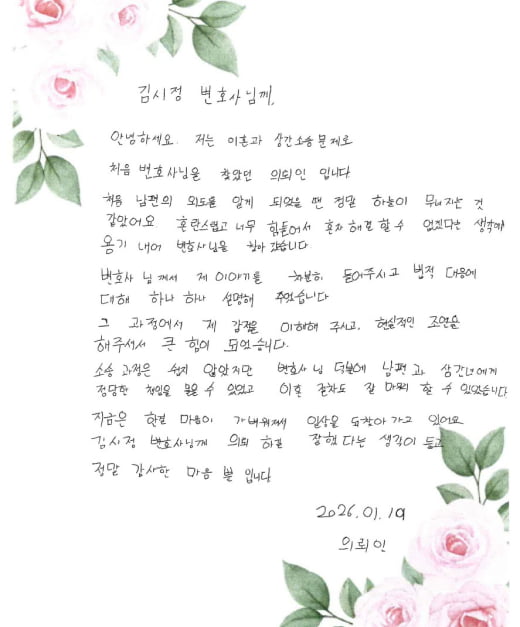 김시정 변호사님께,
안녕하세요. 저는 이혼과 상간소송문제로
처음 변호사님을 찾았던 의뢰인 입니다
처음 남편의 외도를 알게 되었을 땐 정말 하늘이 무너지는 것
같았어요 혼란스럽고 너무 힘들어서 혼자 해결 할 수 없겠다는 생각에
용기 내어 변호사님을 찾아 갔습니다.
변호사 님께서 제 이야기를 차분히 들어주시고 법적 대응에
대해 하나 하나 설명해 주었습니다
그 과정에서 제 감정을 이해해 주시고, 현실적인 조언을
해주셔서 큰 힘이 되었습니다.
소송 과정은 쉽지 않았지만 변호사 님 덕분에 남편과 상간녀에게
정당한 책임을 물을 수 있었고 이혼 절차도 잘 마무리 할 수 있었습니다
지금은 한결 마음이 가벼워져서 일상을 되찾아 가고 있어요
김시정 변호사님께 의뢰 하길 잘했다는 생각이 들고
정말 감사한 마음 뿐 입니다
2026.01.19
의뢰인